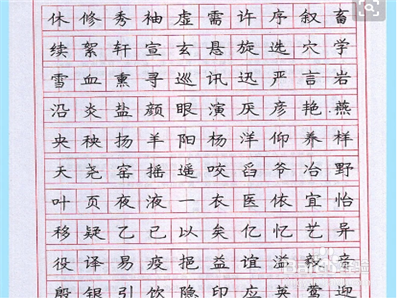 休修秀袖虚需许序叙畜
续絮轩宣玄悬旋选穴学
雪血熏寻巡讯迅严言岩
沿炎盐颜眼演厌彦艳燕
央秧扬羊阳杨洋仰养样
天尧窑摇遥咬舀爷冶野
叶页夜液一衣医依宜怡
移疑乙已以矣亿忆艺异
役译易疫挹益谊溢毅音
殷银引饮隐印应英莺迎